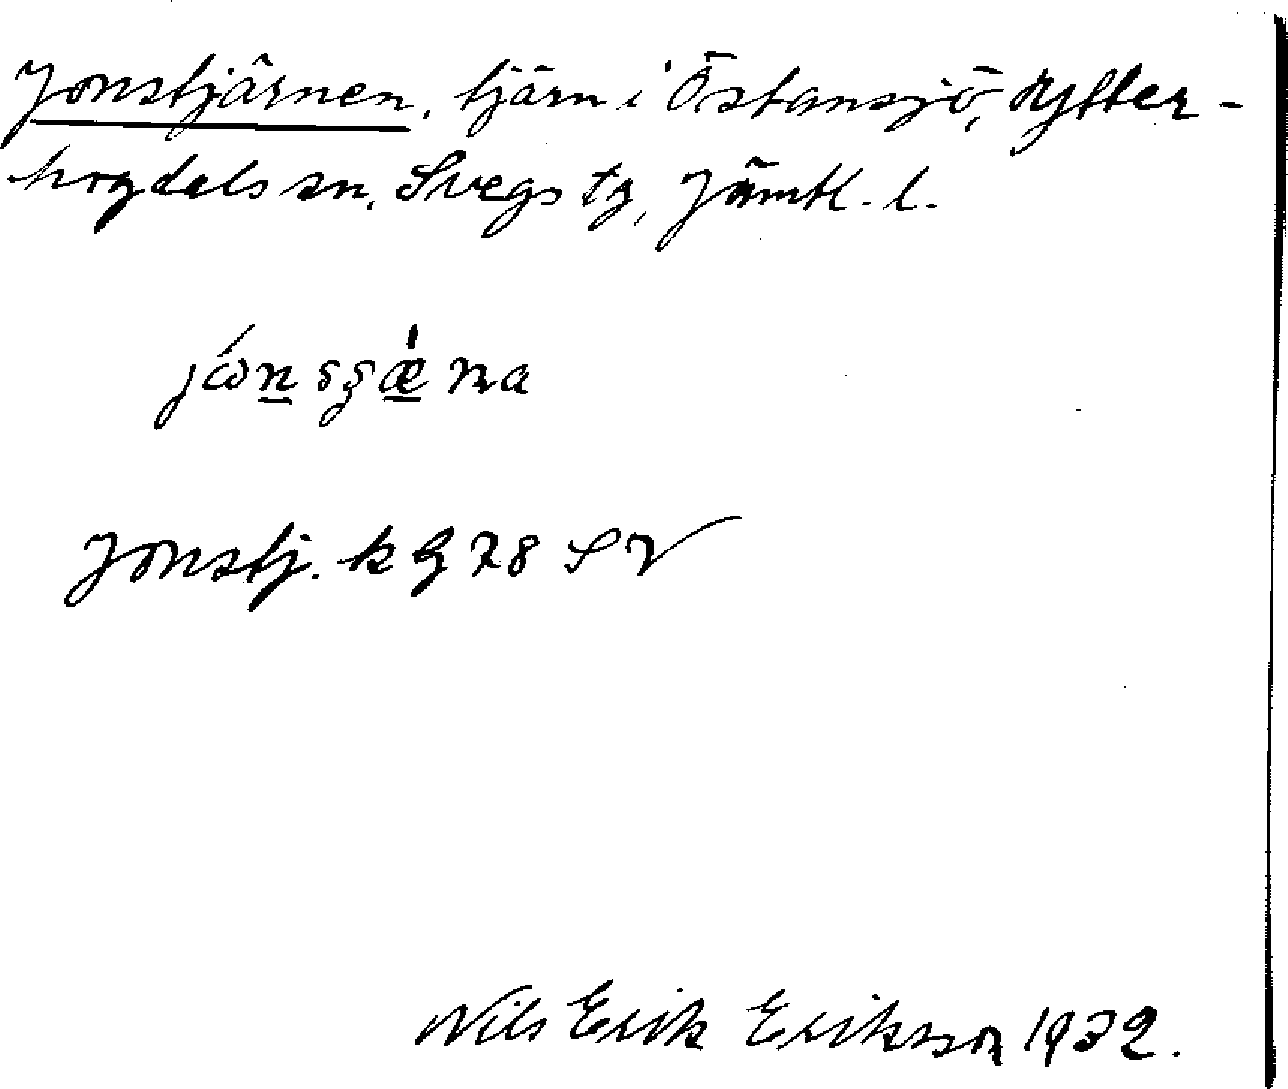 Jonstjärnen, tjärn i Östansjö, Ytter-
hogdals sn, Svegs tg, Jämtl. l.
Jonstj. k G 78 SV
Nils Erik Erikson 1932.